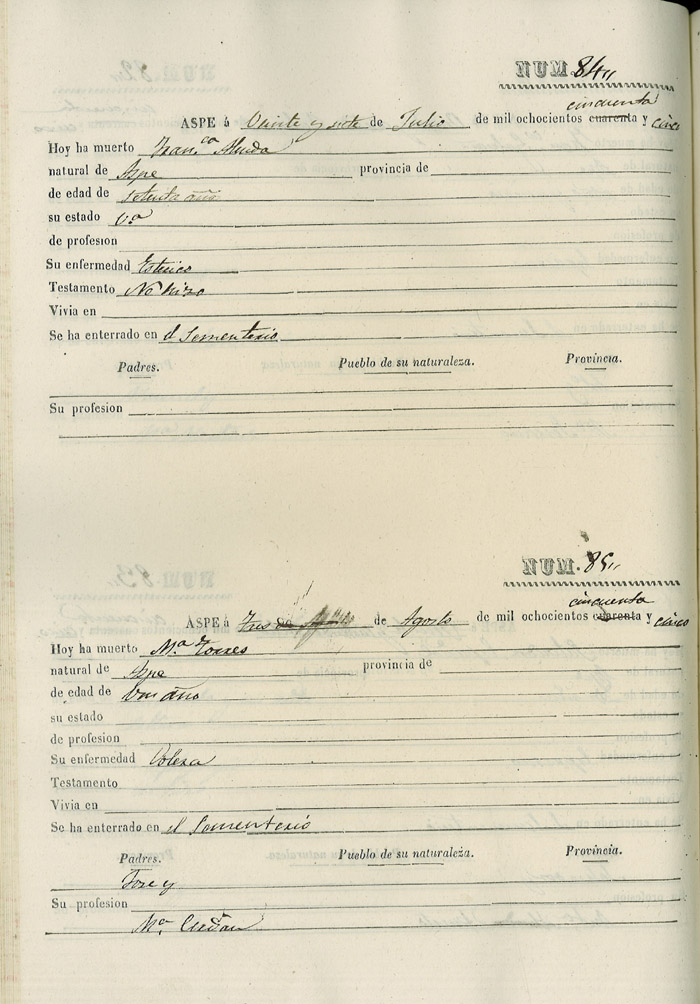 NUM. 84
cincuenta
ASPE á Veinte y siete de Julio de mil ochocientos cuarenta y cinco
Hoy ha muerto Fran.ca
natural de Aspe provincia de
de edad de setenta años
su estado V.a
de profesion
Su enfermedad
Testamento No hizo
Vivia en
Se ha enterrado en el Sementerio
Padres. Pueblo de su naturaleza. Provincia.
Su profesion
NUM. 85
cincuenta
ASPE á Tres de Agosto de mil ochocientos cuarenta y cinco
Hoy ha muerto M.a Torres
natural de Aspe provincia de
de edad de un año
su estado
de profesion
Su enfermedad Colera
Testamento
Vivia en
Se ha enterrado en el Sementerio
Padres. Pueblo de su naturaleza. Provincia.
Jose y
Su profesion
M.a